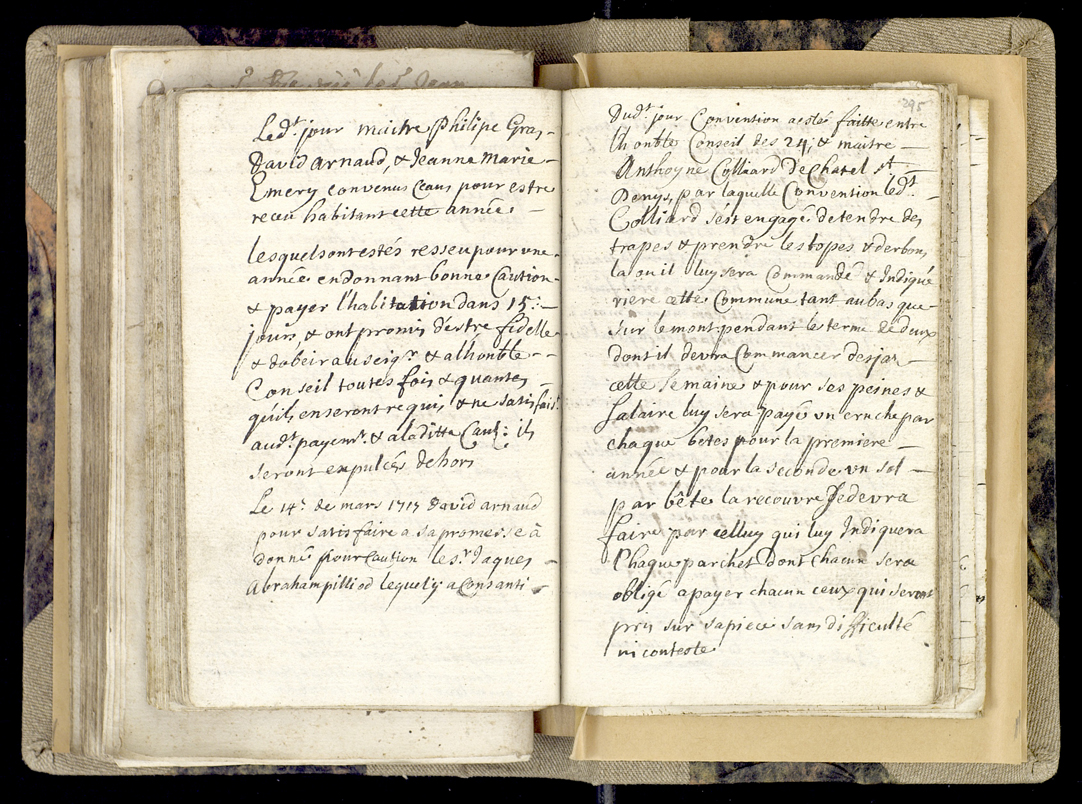 Led.t jour maitre Philipe Gras,
David arnaud, & Jeanne Marie
Emery convenus Ceans pour estre
receu habitant cette année.
lesquels ont estés resseu pour une
année en donnant bonne Caution
& payer l'habitation dans 15.
jours, & ont promis d'estre fidelle
& dobeir au seig.r & a l'honble
Conseil toutes fois & quantes
qu'ils en seront requis & ne satisfais.t
aud.t payem.t & a la ditte Caut: ils
seront expulcés dehors
Le 14.e de mars 1717 David arnaud
pour satisfaire a sa promesse à
donné pour Caution le s.r Jaques
Abraham pilliod lequel y a Consanti
295
Dud.t jour Convention a estés faitte entre
l'honble Conseil des 24; & maitre
Anthoyne Colliard De Chatel st
Denys, par laquelle Convention led.t
Colliard s'est engagé de tendre des
trapes & prendre les topes & derbons
la ou il luy sera Commandé & Indiqué
riere cette Commune tant au bas que
sur le mont pendant le terme de deux
dont il devra Commancer desja
cette semaine & pour ses peines &
salaire luy sera payé un cruche par
chaque bêtes pour la premiere
année & pour la seconde un sol
par bête la recouvre se devra
faire par celluy qui luy Indiquera
Chaque parchet Dont chacun sera
obligé a payer chacun ceux qui seront
pris sur sa piece sans difficulté
ni conteste